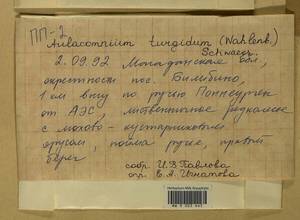 ПП-2
Aulacomnium turgidum (Wahlenb.)
Schwaegr.
2.09.92 Магаданская обл.,
окрестности пос. Билибино,
1 км вниз по ручью
от АЭС, лиственничное редколесье
с мохово-кустарничковым
ярусом, пойма ручья, правый
берег
собр. И.В. Павлова
опр. Е.А. Игнатова